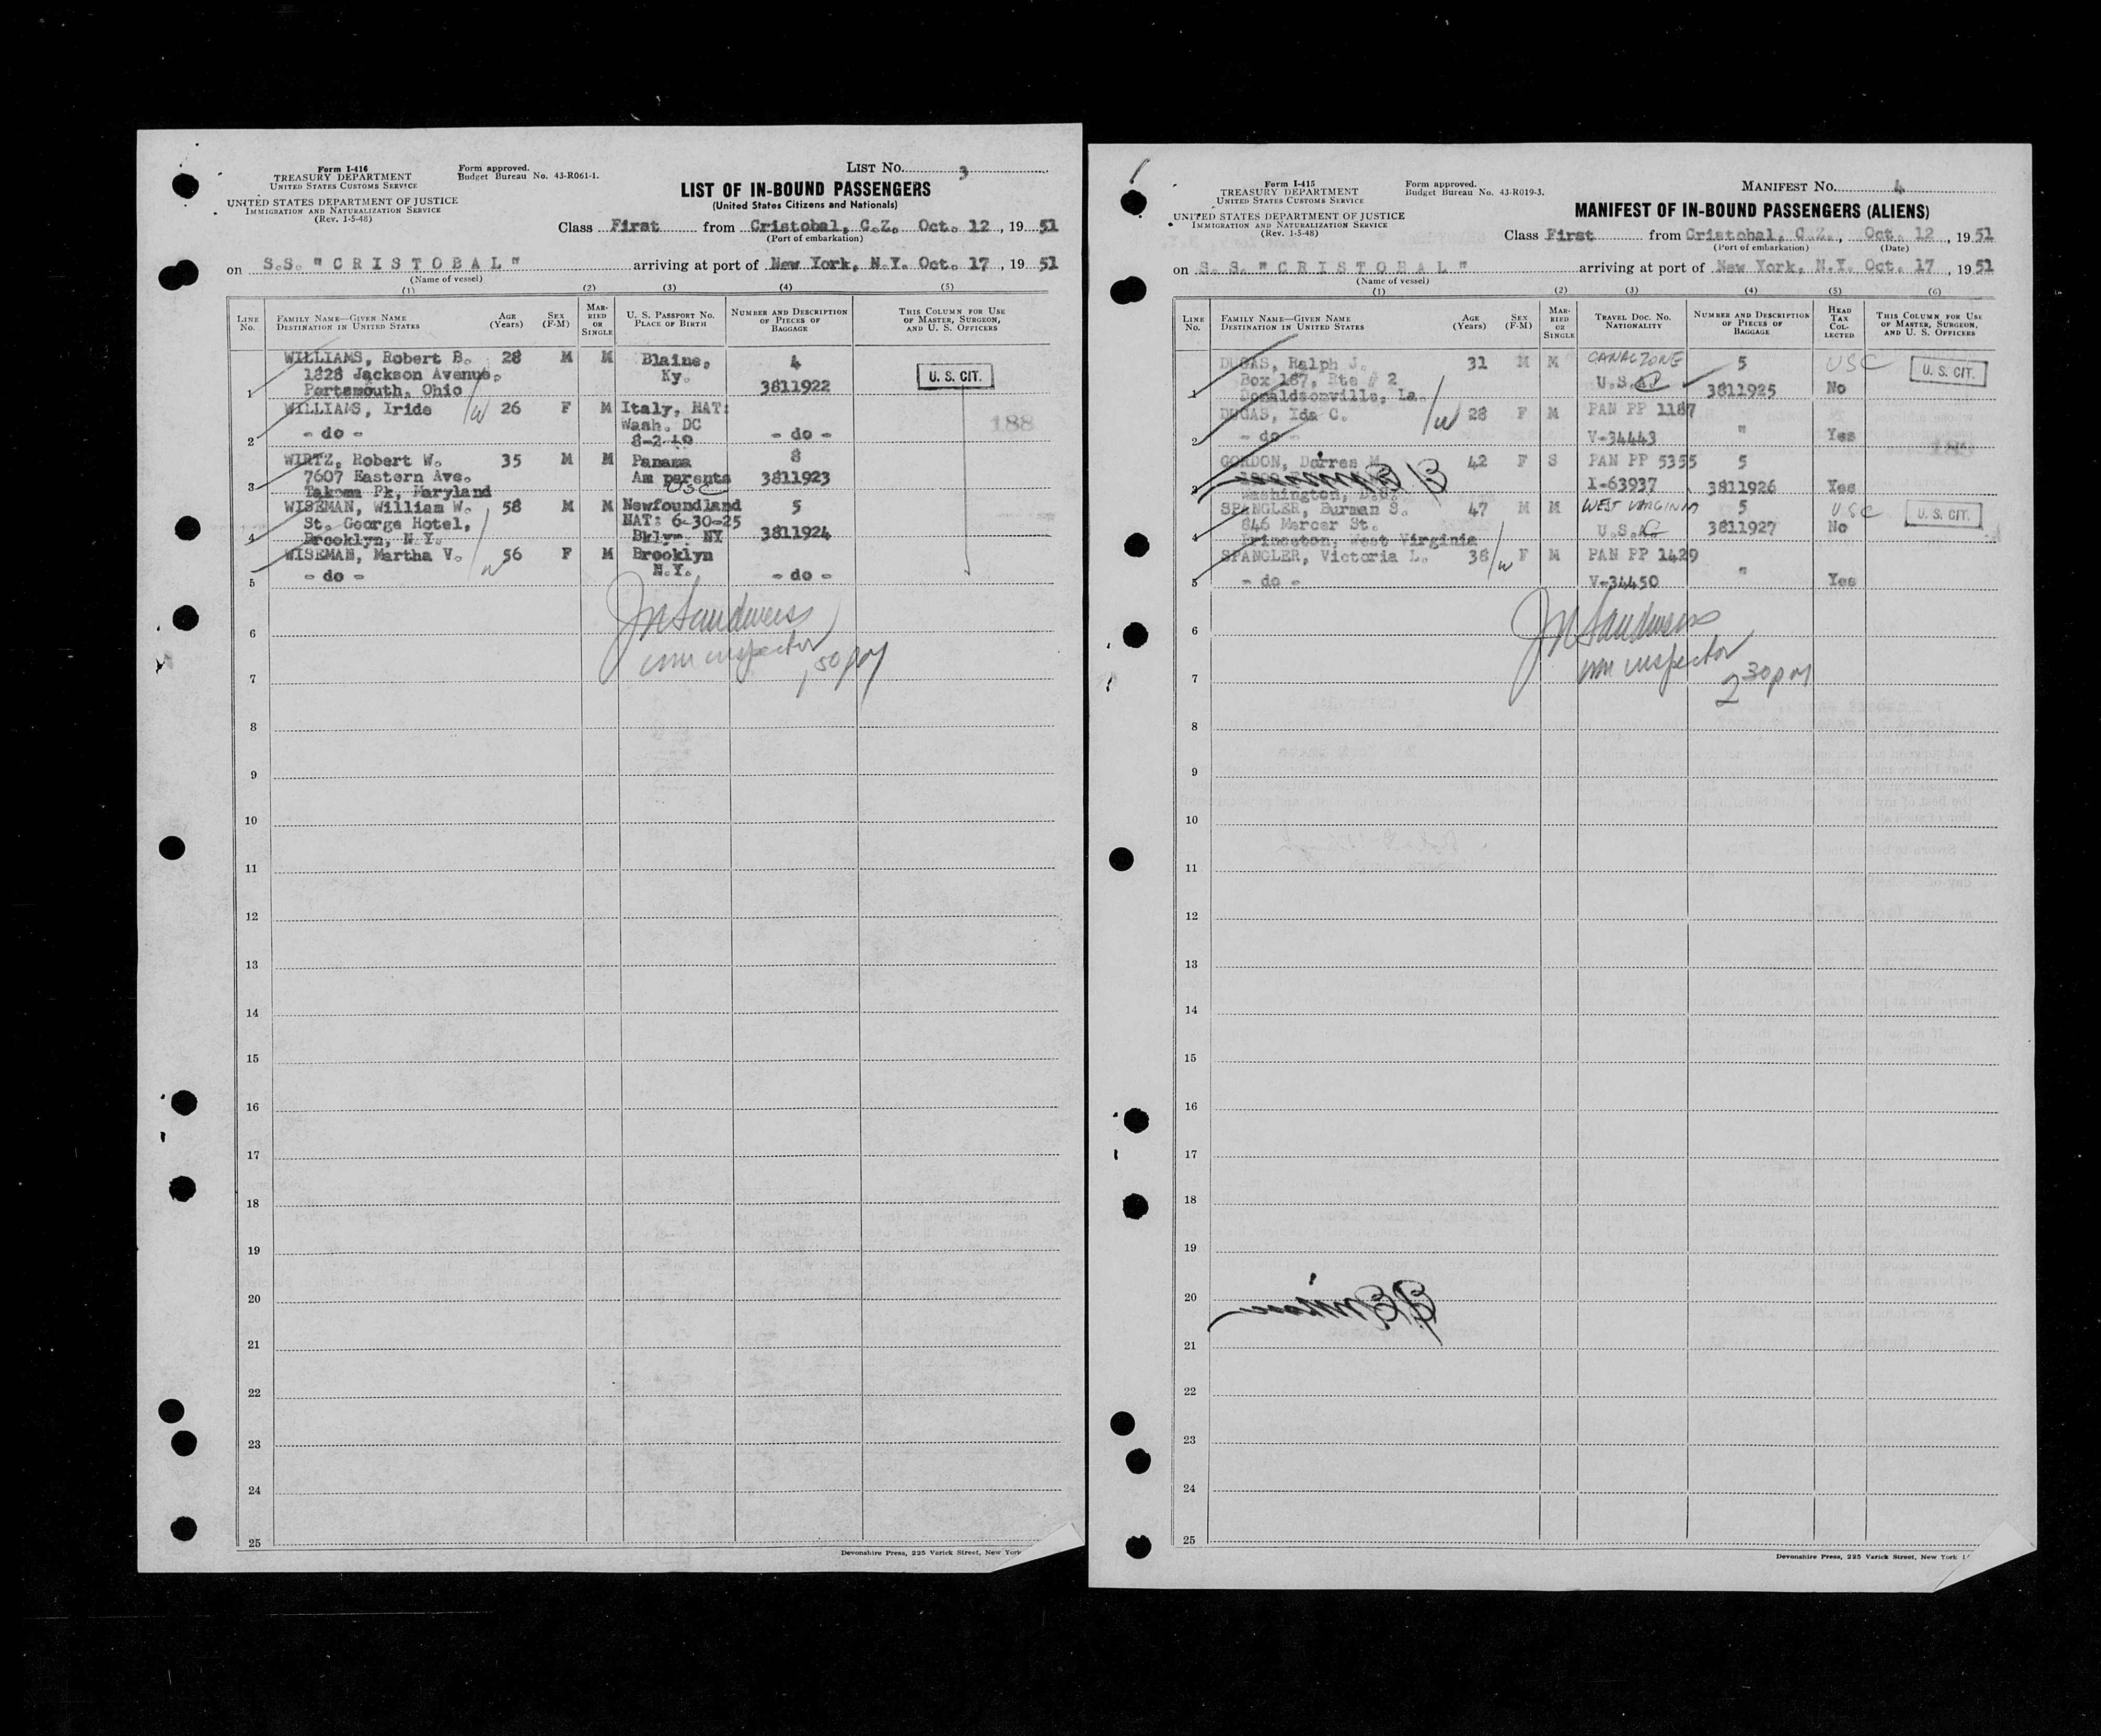 Form I-416
TREASURY DEPARTMENT
UNITED STATES CUSTOMS SERVICE
UNITED STATES DEPARTMENT OF JUSTICE
IMMIGRATION AND NATURALIZATION SERVICE
(Rev. 1-5-48)
Form approved.
Budget Bureau No. 43-R061-1.
LIST NO. 3
LIST OF IN-BOUND PASSENGERS
(United States Citizens and Nationals)
Class First from Cristobal, C.Z. Oct. 12, 1951
(Port of embarkation)
on S.S. "CRISTOBAL" arriving at port of New York, N.Y. Oct. 17, 1951
(Name of vessel)
(1) (2) (3) (4) (5)
LINE NO. FAMILY NAME—GIVEN NAME DESTINATION IN UNITED STATES AGE (YEARS) SEX (F-M) MARRIED OR SINGLE U. S. PASSPORT NO. PLACE OF BIRTH NUMBER AND DESCRIPTION OF PIECES OF BAGGAGE THIS COLUMN FOR USE OF MASTER, SURGEON, AND U. S. OFFICERS
WILLIAMS, Robert B. 28 M M Blaine, 4
1828 Jackson Avenue, Ky. U. S. CIT.
1 Portsmouth, Ohio 3811922
WILLIAMS, Iride /W 26 F M Italy, NAT: 188
Wash. DC
2 - do - 8-2-49 - do -
WIRTZ, Robert W. 35 M M Panama 8
7607 Eastern Ave. Am parents 3811923
3 Takoma Pk, Maryland USC
WISEMAN, William W. 58 M M Newfoundland 5
St. George Hotel, NAT: 6-30-25
4 Brooklyn, N.Y. Bklyn. NY 3811924
WISEMAN, Martha V. /W 56 F M Brooklyn
5 - do - N.Y. - do -
JM Sandweiss
imm inspector
1 50 pm
6
7
8
9
10
11
12
13
14
15
16
17
18
19
20
21
22
23
24
25
Devonshire Press, 225 Varick Street, New York
Form I-415
TREASURY DEPARTMENT
UNITED STATES CUSTOMS SERVICE
UNITED STATES DEPARTMENT OF JUSTICE
IMMIGRATION AND NATURALIZATION SERVICE
(Rev. 1-5-48)
Form approved.
Budget Bureau No. 43-R019-3.
MANIFEST NO. 4
MANIFEST OF IN-BOUND PASSENGERS (ALIENS)
Class First from Cristobal, C.Z., Oct. 12, 1951
(Port of embarkation) (Date)
on S. S. "CRISTOBAL" arriving at port of New York, N.Y. Oct. 17, 1951
(Name of vessel)
(1) (2) (3) (4) (5) (6)
LINE NO. FAMILY NAME—GIVEN NAME DESTINATION IN UNITED STATES AGE (YEARS) SEX (F-M) MARRIED OR SINGLE TRAVEL DOC. NO. NATIONALITY NUMBER AND DESCRIPTION OF PIECES OF BAGGAGE HEAD TAX COLLECTED THIS COLUMN FOR USE OF MASTER, SURGEON, AND U. S. OFFICERS
DUGAS, Ralph J. 31 M M CANAL ZONE 5 USC U. S. CIT.
Box 187, Rte # 2 U.S.
1 Donaldsonville, La. 3811925 No
DUGAS, Ida C. /W 28 F M PAN PP 1187
2 - do - V-34443 " Yes
GORDON, Dorres M. 42 F S PAN PP 5355 5
3 Washington, D.C. I-63937 3811926 Yes
SPANGLER, Burman S. 47 M M WEST VIRGINIA 5 USC U. S. CIT.
846 Mercer St. U.S. 3811927 No
4 Princeton, West Virginia
SPANGLER, Victoria L. 38 /W F M PAN PP 1429
5 - do - V-34450 " Yes
JM Sandweiss
imm inspector
2 30 pm
6
7
8
9
10
11
12
13
14
15
16
17
18
19
20
21
22
23
24
25
Devonshire Press, 225 Varick Street, New York